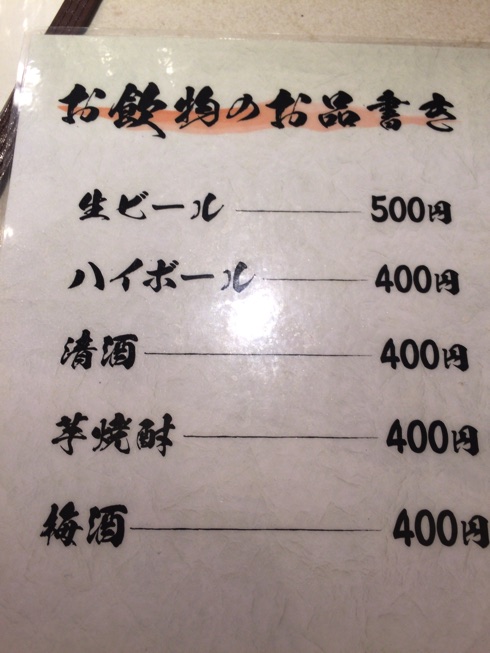 お飲物のお品書き
生ビール 500円
ハイボール 400円
清酒 400円
芋焼酎 400円
梅酒 400円